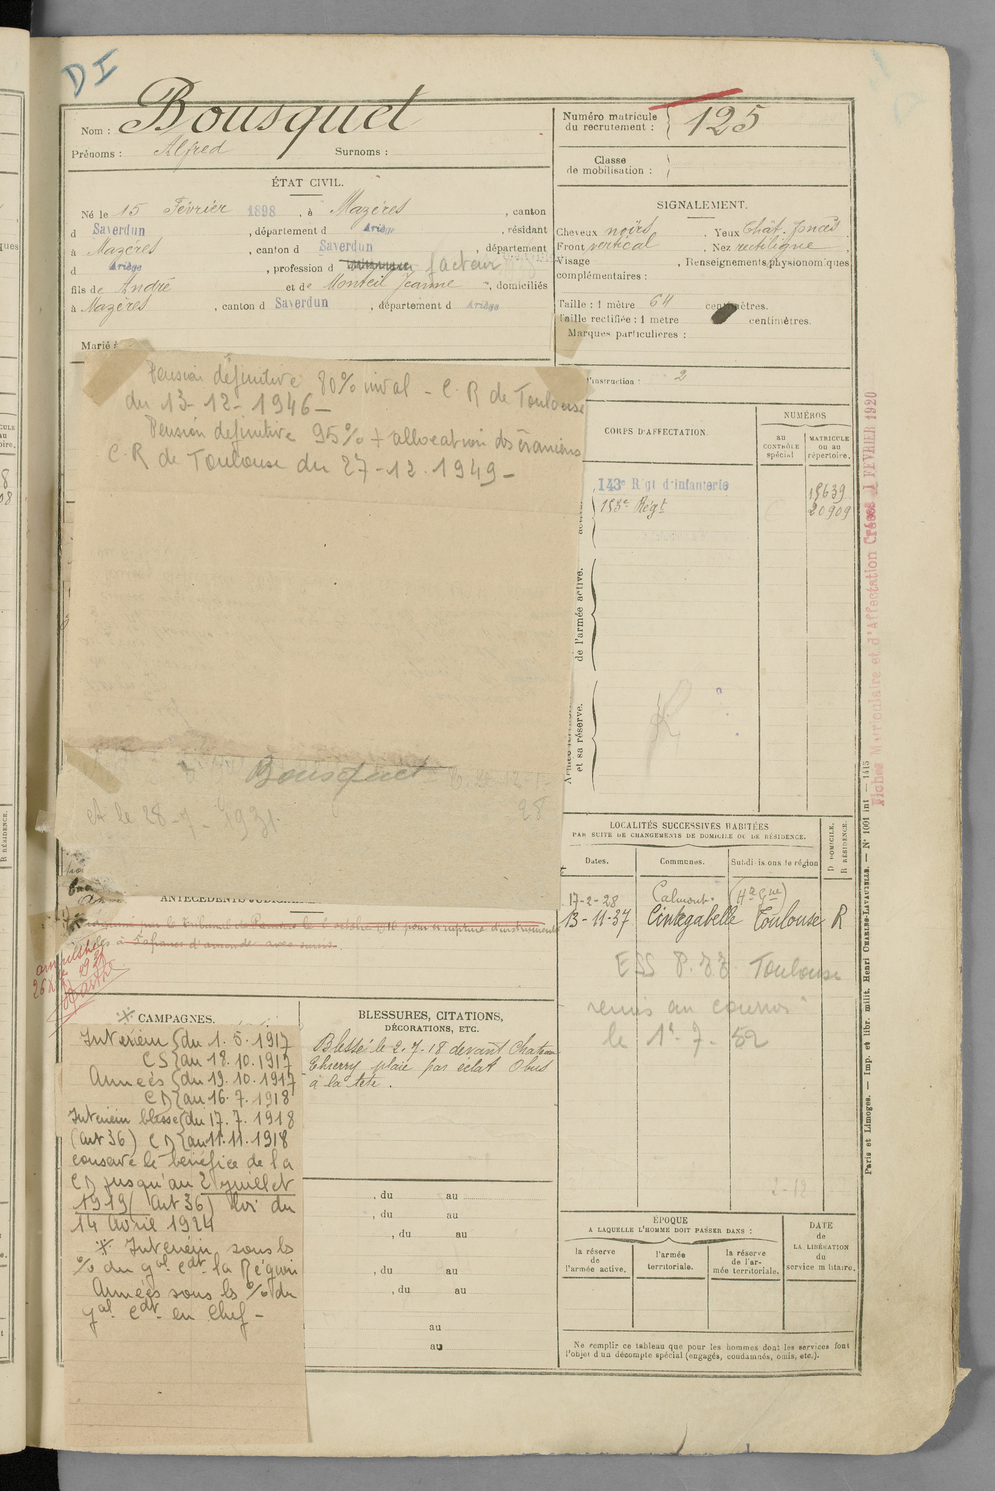 DI
Nom : Bousquet
Prénoms : Alfred Surnoms :
ÉTAT CIVIL.
Né le 15 Février 1898, à Mazères, canton
d Saverdun, département d Ariège, résidant
à Mazères, canton d Saverdun, département
d Ariège, profession d facteur
fils de André et de Monteil Jeanne, domiciliés
à Mazères, canton d Saverdun, département d Ariège
Marié à
Numéro matricule
du recrutement : 125
Classe
de mobilisation :
SIGNALEMENT.
Cheveux noirs Yeux Chât. foncés
Front vertical, Nez rectiligne
Visage, Renseignements physionomiques
complémentaires :
Taille : 1 mètre 64 centimètres.
Taille rectifiée : 1 mètre centimètres.
Marques particulières :
l'instruction : 2
Pension définitive 80% inval - C. R de Toulouse
du 13-12-1946-
Pension définitive 95% + allocation
C.R de Toulouse du 27-12.1949-
Bousquet
28
Et le 28-7-1931.
CORPS D'AFFECTATION.
NUMÉROS
au
CONTRÔLE
spécial
MATRICULE
ou au
répertoire.
143e Rgt d'infanterie 15639
158e Régt 20909
de l'armée active.
et sa réserve.
Fiches Matriculaire et d'Affectation Créées FEVRIER 1920
LOCALITÉS SUCCESSIVES HABITÉES
PAR SUITE DE CHANGEMENTS DE DOMICILE OU DE RÉSIDENCE.
Dates. Communes. Subdivisions de région
D DOMICILE.
R RÉSIDENCE.
17-2-28 Calmont. (Hte Gne)
13-11-37 Cintegabelle Toulouse R
ESS P.ZZ. Toulouse
remis au
le 1er. 7. 52
ANTÉCÉDENTS JUDICIAIRES
amnistié
CAMPAGNES.
Intérieur du 1.5.1917
CS au 18.10.1917
Armées du 19.10.1917
CD au 16.7.1918
Intérieur blessé du 17.7.1918
(art 36) CD au 11.11.1918
conserve le bénéfice de la
CD jusqu'au 2 juillet
1919 (art 36) loi du
14 avril 1924
* Intérieur sous ls
% du gal cdt la Région
Armées sous ls % du
gal cdt en chef -
BLESSURES, CITATIONS,
DÉCORATIONS, ETC.
Blessé le 2.7.18 devant Chateau
Thierry plaie par éclat Obus
à la tête.
, du au
, du au
, du au
, du au
, du au
au
au
ÉPOQUE
A LAQUELLE L'HOMME DOIT PASSER DANS :
la réserve
de
l'armée active.
l'armée
territoriale.
la réserve
de l'ar-
mée territoriale.
DATE
de
LA LIBÉRATION
du
service militaire.
Ne remplir ce tableau que pour les hommes dont les services font
l'objet d'un décompte spécial (engagés, condamnés, omis, etc.).
Paris et Limoges. — Imp. et libr. milit. Henri CHARLES-LAVAUZELLE. — N° 1001 int — 1415